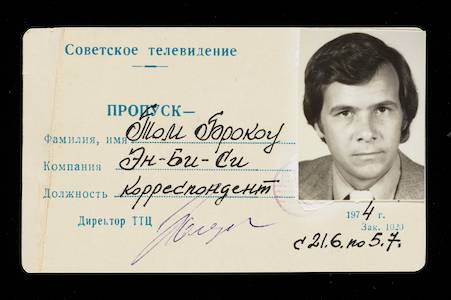 Советское телевидение
ПРОПУСК—
Фамилия, имя Том Брокоу
Компания Эн-Би-Си
Должность корреспондент
Директор ТТЦ
1974 г.
Зак. 1020
с 21.6. по 5.7.